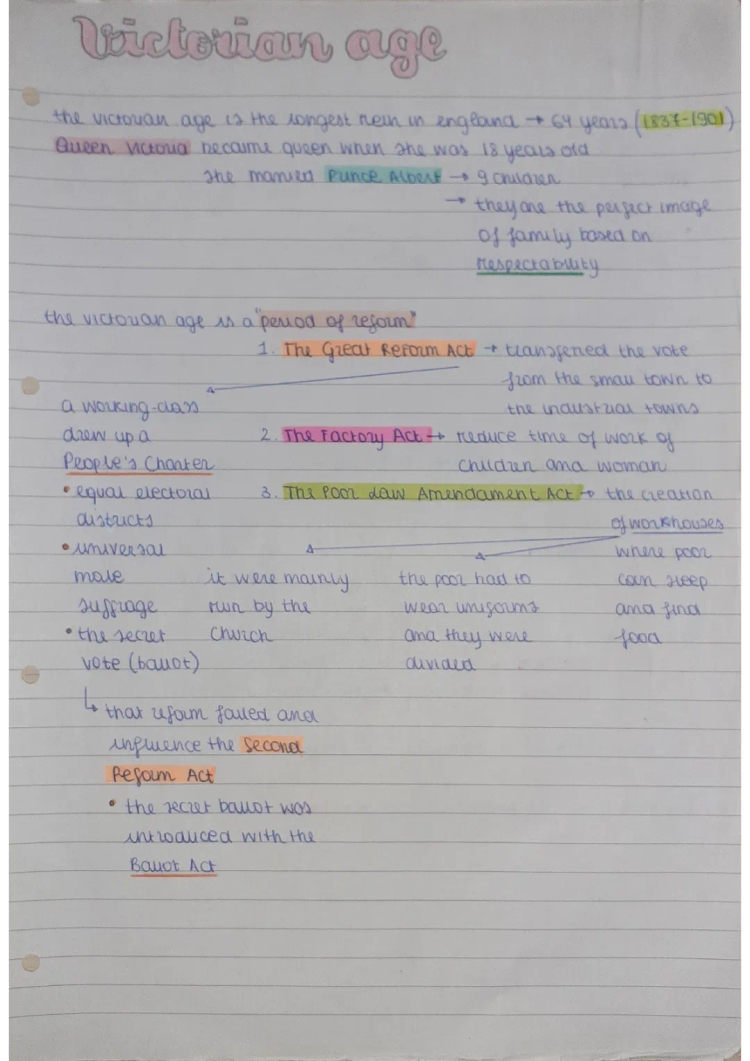 Victorian age
the victorian age is the longest rein in england → 64 years (1837-1901)
Queen Victoria became queen when she was 18 years old
she married Prince Albert → 9 children
→ they are the perfect image
of family based on
respectability
the victorian age is a "period of reform"
1. The Great Reform Act → transferred the vote
from the small town to
the industrial towns
a working-class
drew up a
People's Charter
• equal electoral
districts
• universal
male
suffrage
• the secret
vote (ballot)
2. The Factory Act → reduce time of work of
children and woman
3. The Poor Law Amendament Act → the creation
of workhouses
where poor
can sleep
and find
food
it were mainly
run by the
Church
the poor had to
wear uniforms
and they were
divided
↳ that reform failed and
influence the Second
Reform Act
• the secret ballot was
introduced with the
Ballot Act